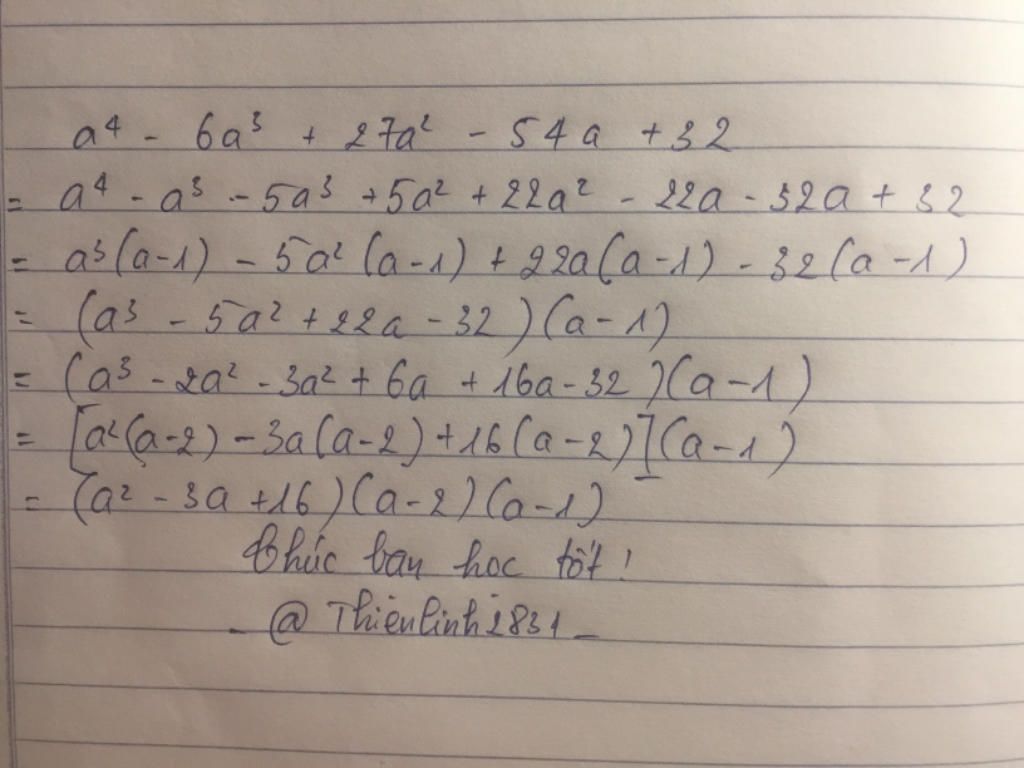 a⁴ - 6a³ + 27a² - 54a + 32
= a⁴ - a³ - 5a³ + 5a² + 22a² - 22a - 32a + 32
= a³(a-1) - 5a²(a-1) + 22a(a-1) - 32(a-1)
= (a³ - 5a² + 22a - 32)(a-1)
= (a³ - 2a² - 3a² + 6a + 16a - 32)(a-1)
= [a²(a-2) - 3a(a-2) + 16(a-2)](a-1)
= (a² - 3a + 16)(a-2)(a-1)
Chúc bạn học tốt!
- @Thienlinh2831 -